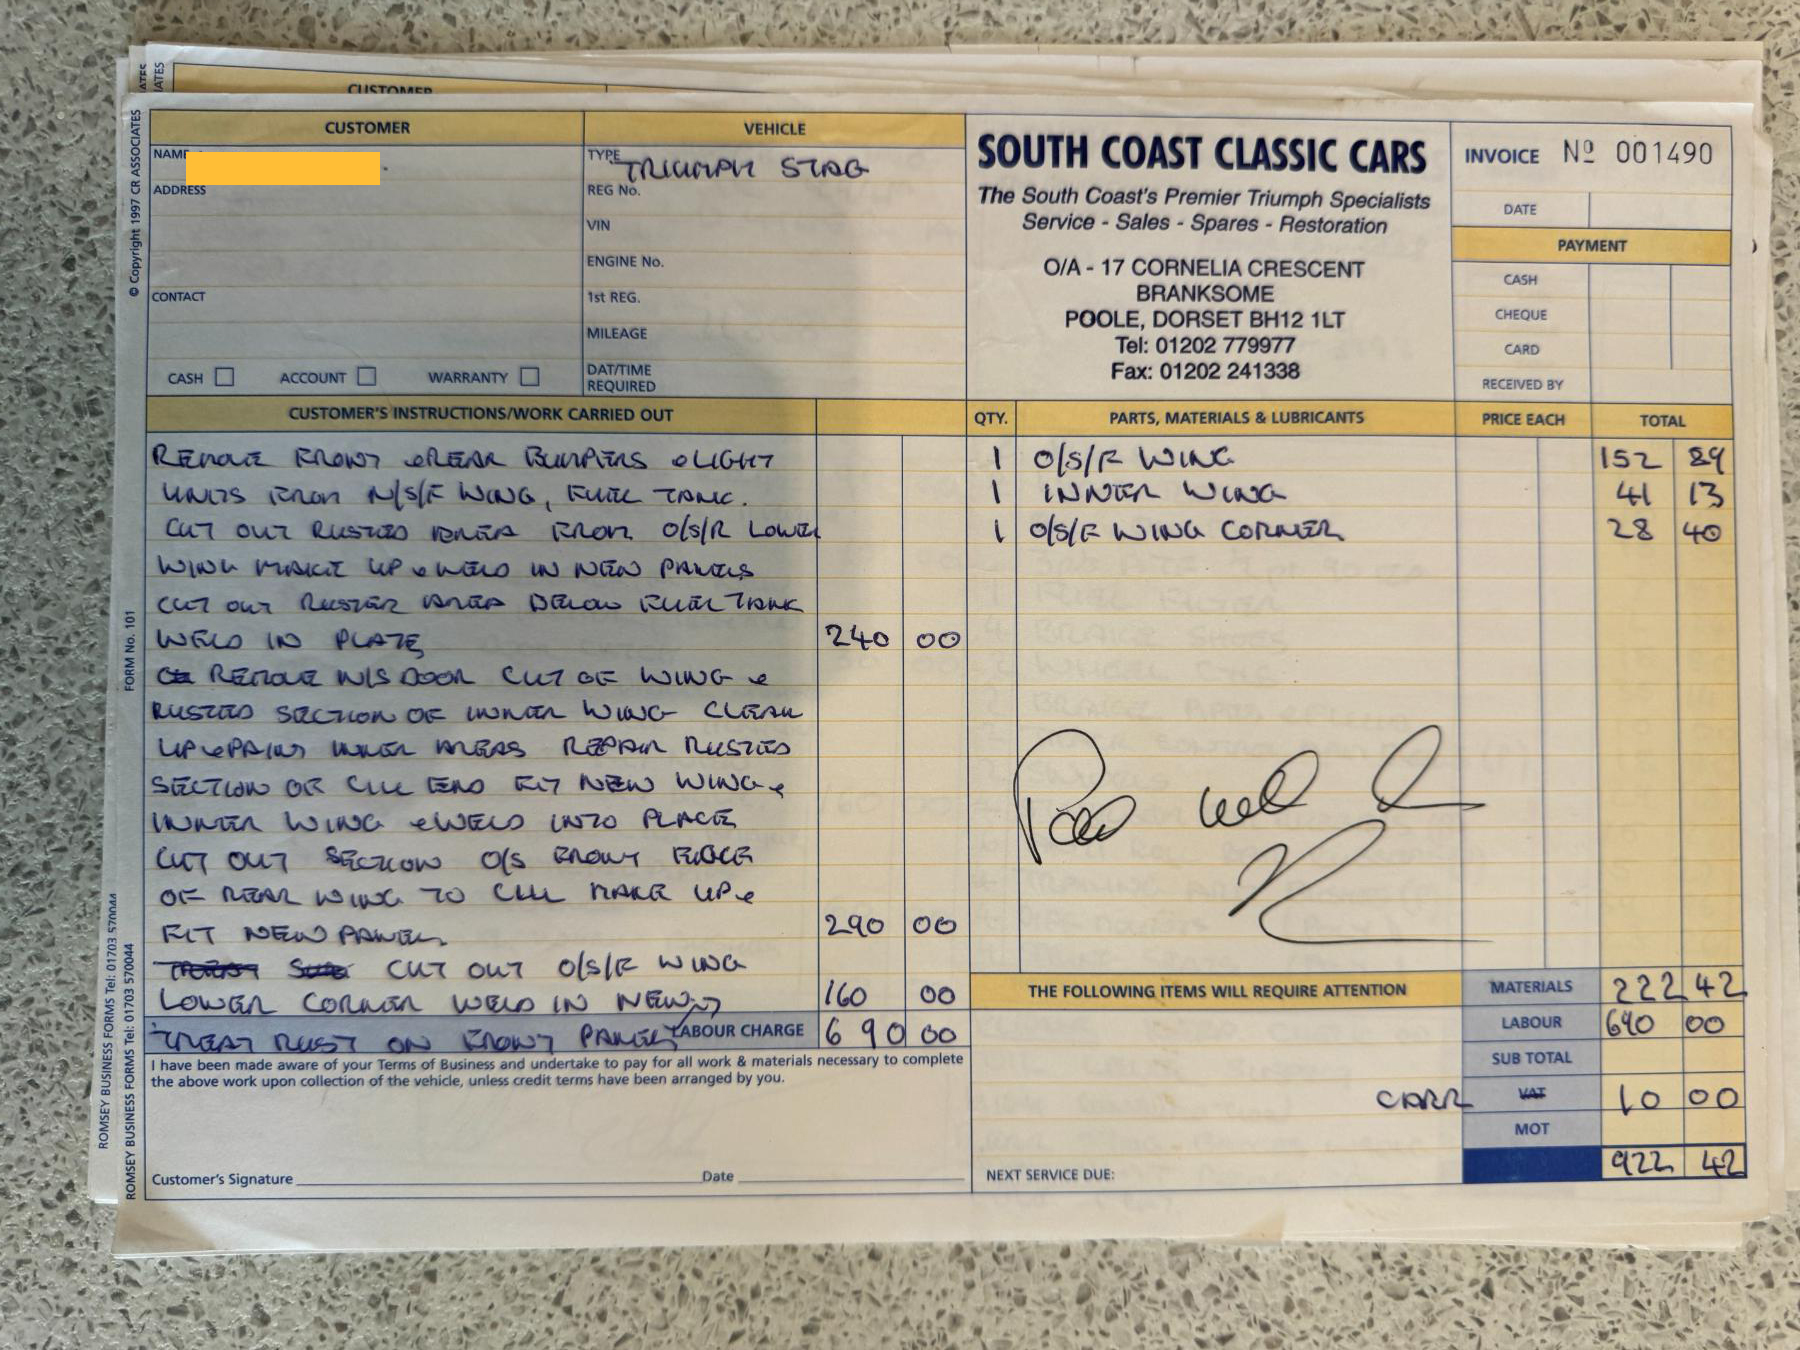 CUSTOMER
CUSTOMER
VEHICLE
NAME
TYPE TRIUMPH STAG
ADDRESS
REG No.
VIN
ENGINE No.
CONTACT
1st REG.
MILEAGE
CASH ACCOUNT WARRANTY
DAT/TIME
REQUIRED
SOUTH COAST CLASSIC CARS
The South Coast's Premier Triumph Specialists
Service - Sales - Spares - Restoration
O/A - 17 CORNELIA CRESCENT
BRANKSOME
POOLE, DORSET BH12 1LT
Tel: 01202 779977
Fax: 01202 241338
INVOICE Nº 001490
DATE
PAYMENT
CASH
CHEQUE
CARD
RECEIVED BY
CUSTOMER'S INSTRUCTIONS/WORK CARRIED OUT
REMOVE FRONT & REAR BUMPERS & LIGHT
UNITS FROM N/S/F WING, FUEL TANK.
CUT OUT RUSTED AREA FROM O/S/R LOWER
WING MAKE UP & WELD IN NEW PANELS
CUT OUT RUSTED AREA BELOW FUEL TANK
WELD IN PLATE 240 00
REMOVE N/S DOOR CUT OF WING &
RUSTED SECTION OF INNER WING CLEAN
UP & PAINT INNER AREAS REPAIR RUSTED
SECTION OF CILL END FIT NEW WING &
INNER WING & WELD INTO PLACE
CUT OUT SECTION O/S FRONT EDGE
OF REAR WING TO CILL MAKE UP &
FIT NEW PANEL 290 00
CUT OUT O/S/F WING
LOWER CORNER WELD IN NEW 160 00
TREAT RUST ON FRONT PANEL LABOUR CHARGE 690 00
I have been made aware of your Terms of Business and undertake to pay for all work & materials necessary to complete
the above work upon collection of the vehicle, unless credit terms have been arranged by you.
Customer's Signature Date
QTY. PARTS, MATERIALS & LUBRICANTS PRICE EACH TOTAL
1 O/S/F WING 152 89
1 INNER WING 41 13
1 O/S/F WING CORNER 28 40
Paid
THE FOLLOWING ITEMS WILL REQUIRE ATTENTION
NEXT SERVICE DUE:
MATERIALS 222 42
LABOUR 690 00
SUB TOTAL
CARR VAT 10 00
MOT
922 42
© Copyright 1997 CR ASSOCIATES
FORM No. 101
ROMSEY BUSINESS FORMS Tel: 01703 570044
ROMSEY BUSINESS FORMS Tel: 01703 570044